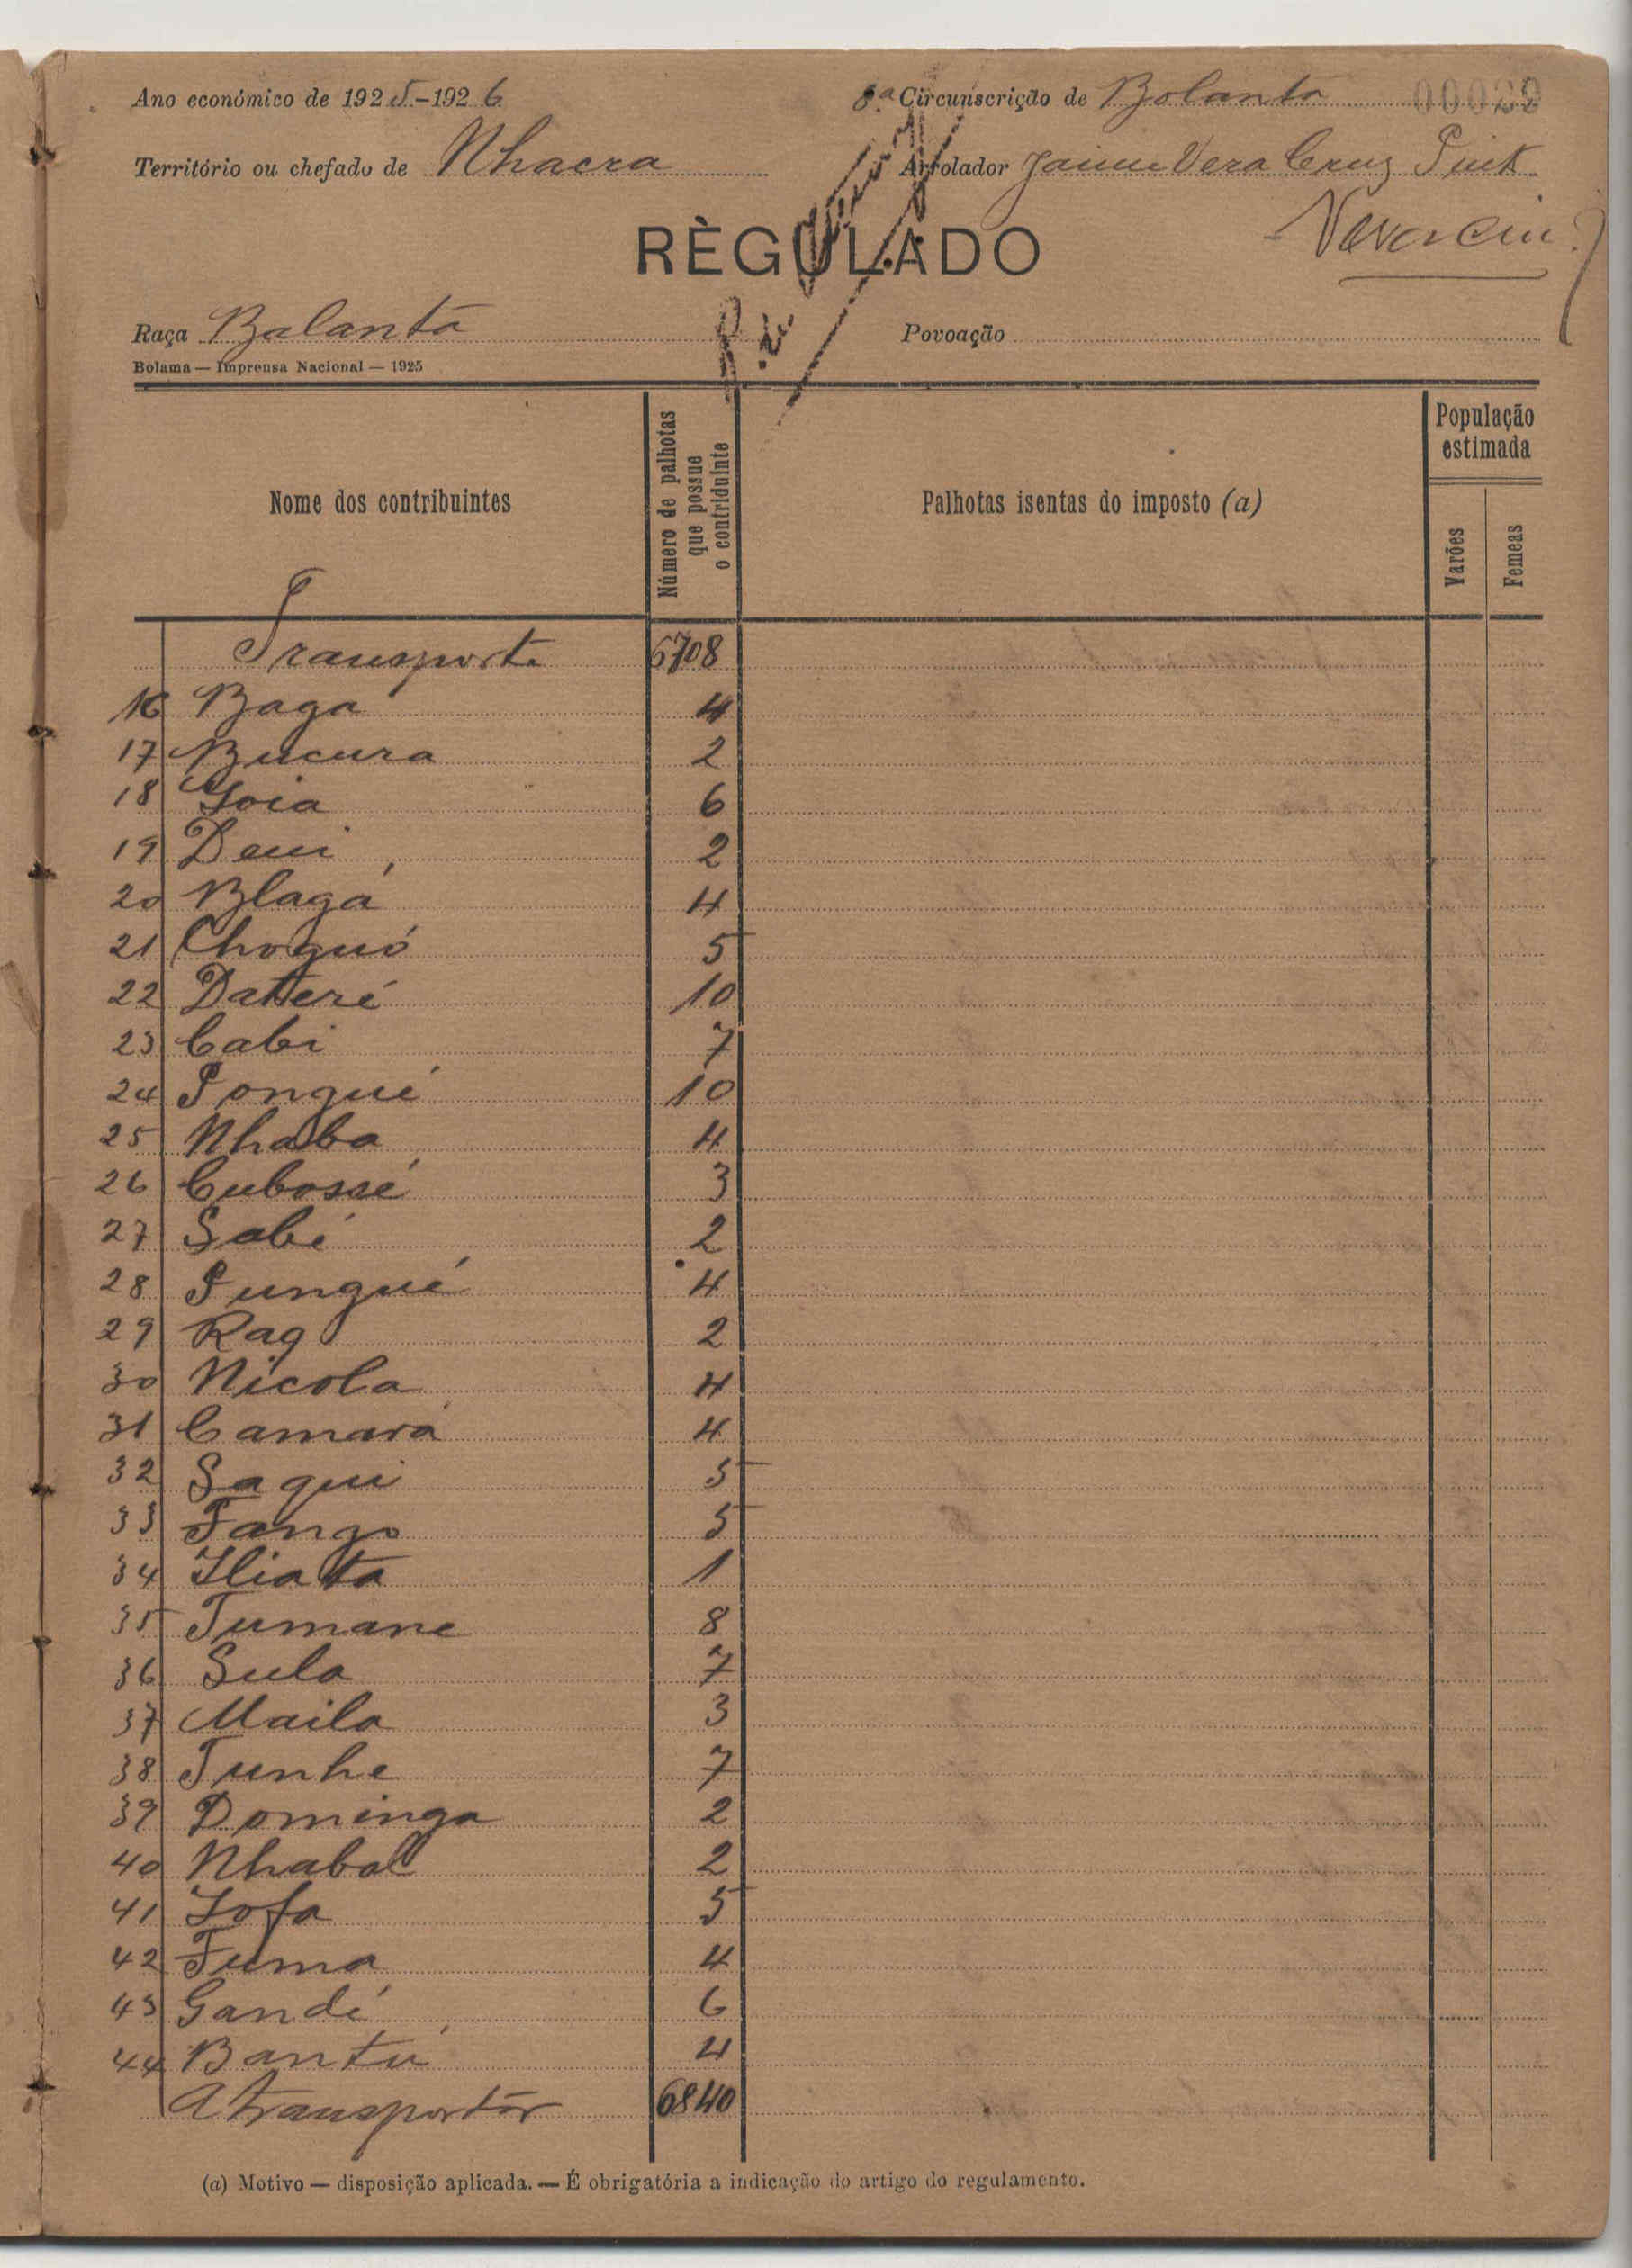 Ano económico de 1925-1926
8.ª Circunscrição de Bolanta
Território ou chefado de Nhacra
Arrolador Jaime Vera Cruz
RÈGULADO
Raça Balanta
Povoação
Bolama — Imprensa Nacional — 1925
Nome dos contribuintes
Número de palhotas
que possue
o contriduinte
Palhotas isentas do imposto (a)
População
estimada
Varões
Femeas
Transporte 6708
16 Baga 4
17 Bucura 2
18 Goia 6
19 Deui 2
20 Blagá 4
21 Choguó 5
22 Datteré 10
23 Cabi 7
24 Pongué 10
25 Nhaba 4
26 Cubossé 3
27 Sabé 2
28 Pungué 4
29 Rag 2
30 Nicola 4
31 Camará 4
32 Saqui 5
33 Fango 5
34 Iliata 1
35 Tumane 8
36 Sula 7
37 Maila 3
38 Tunhe 7
39 Dominga 2
40 Nhabal 2
41 Iofa 5
42 Fuma 4
43 Gandé 6
44 Bantú 4
A transportar 6840
(a) Motivo — disposição aplicada. — É obrigatória a indicação do artigo do regulamento.